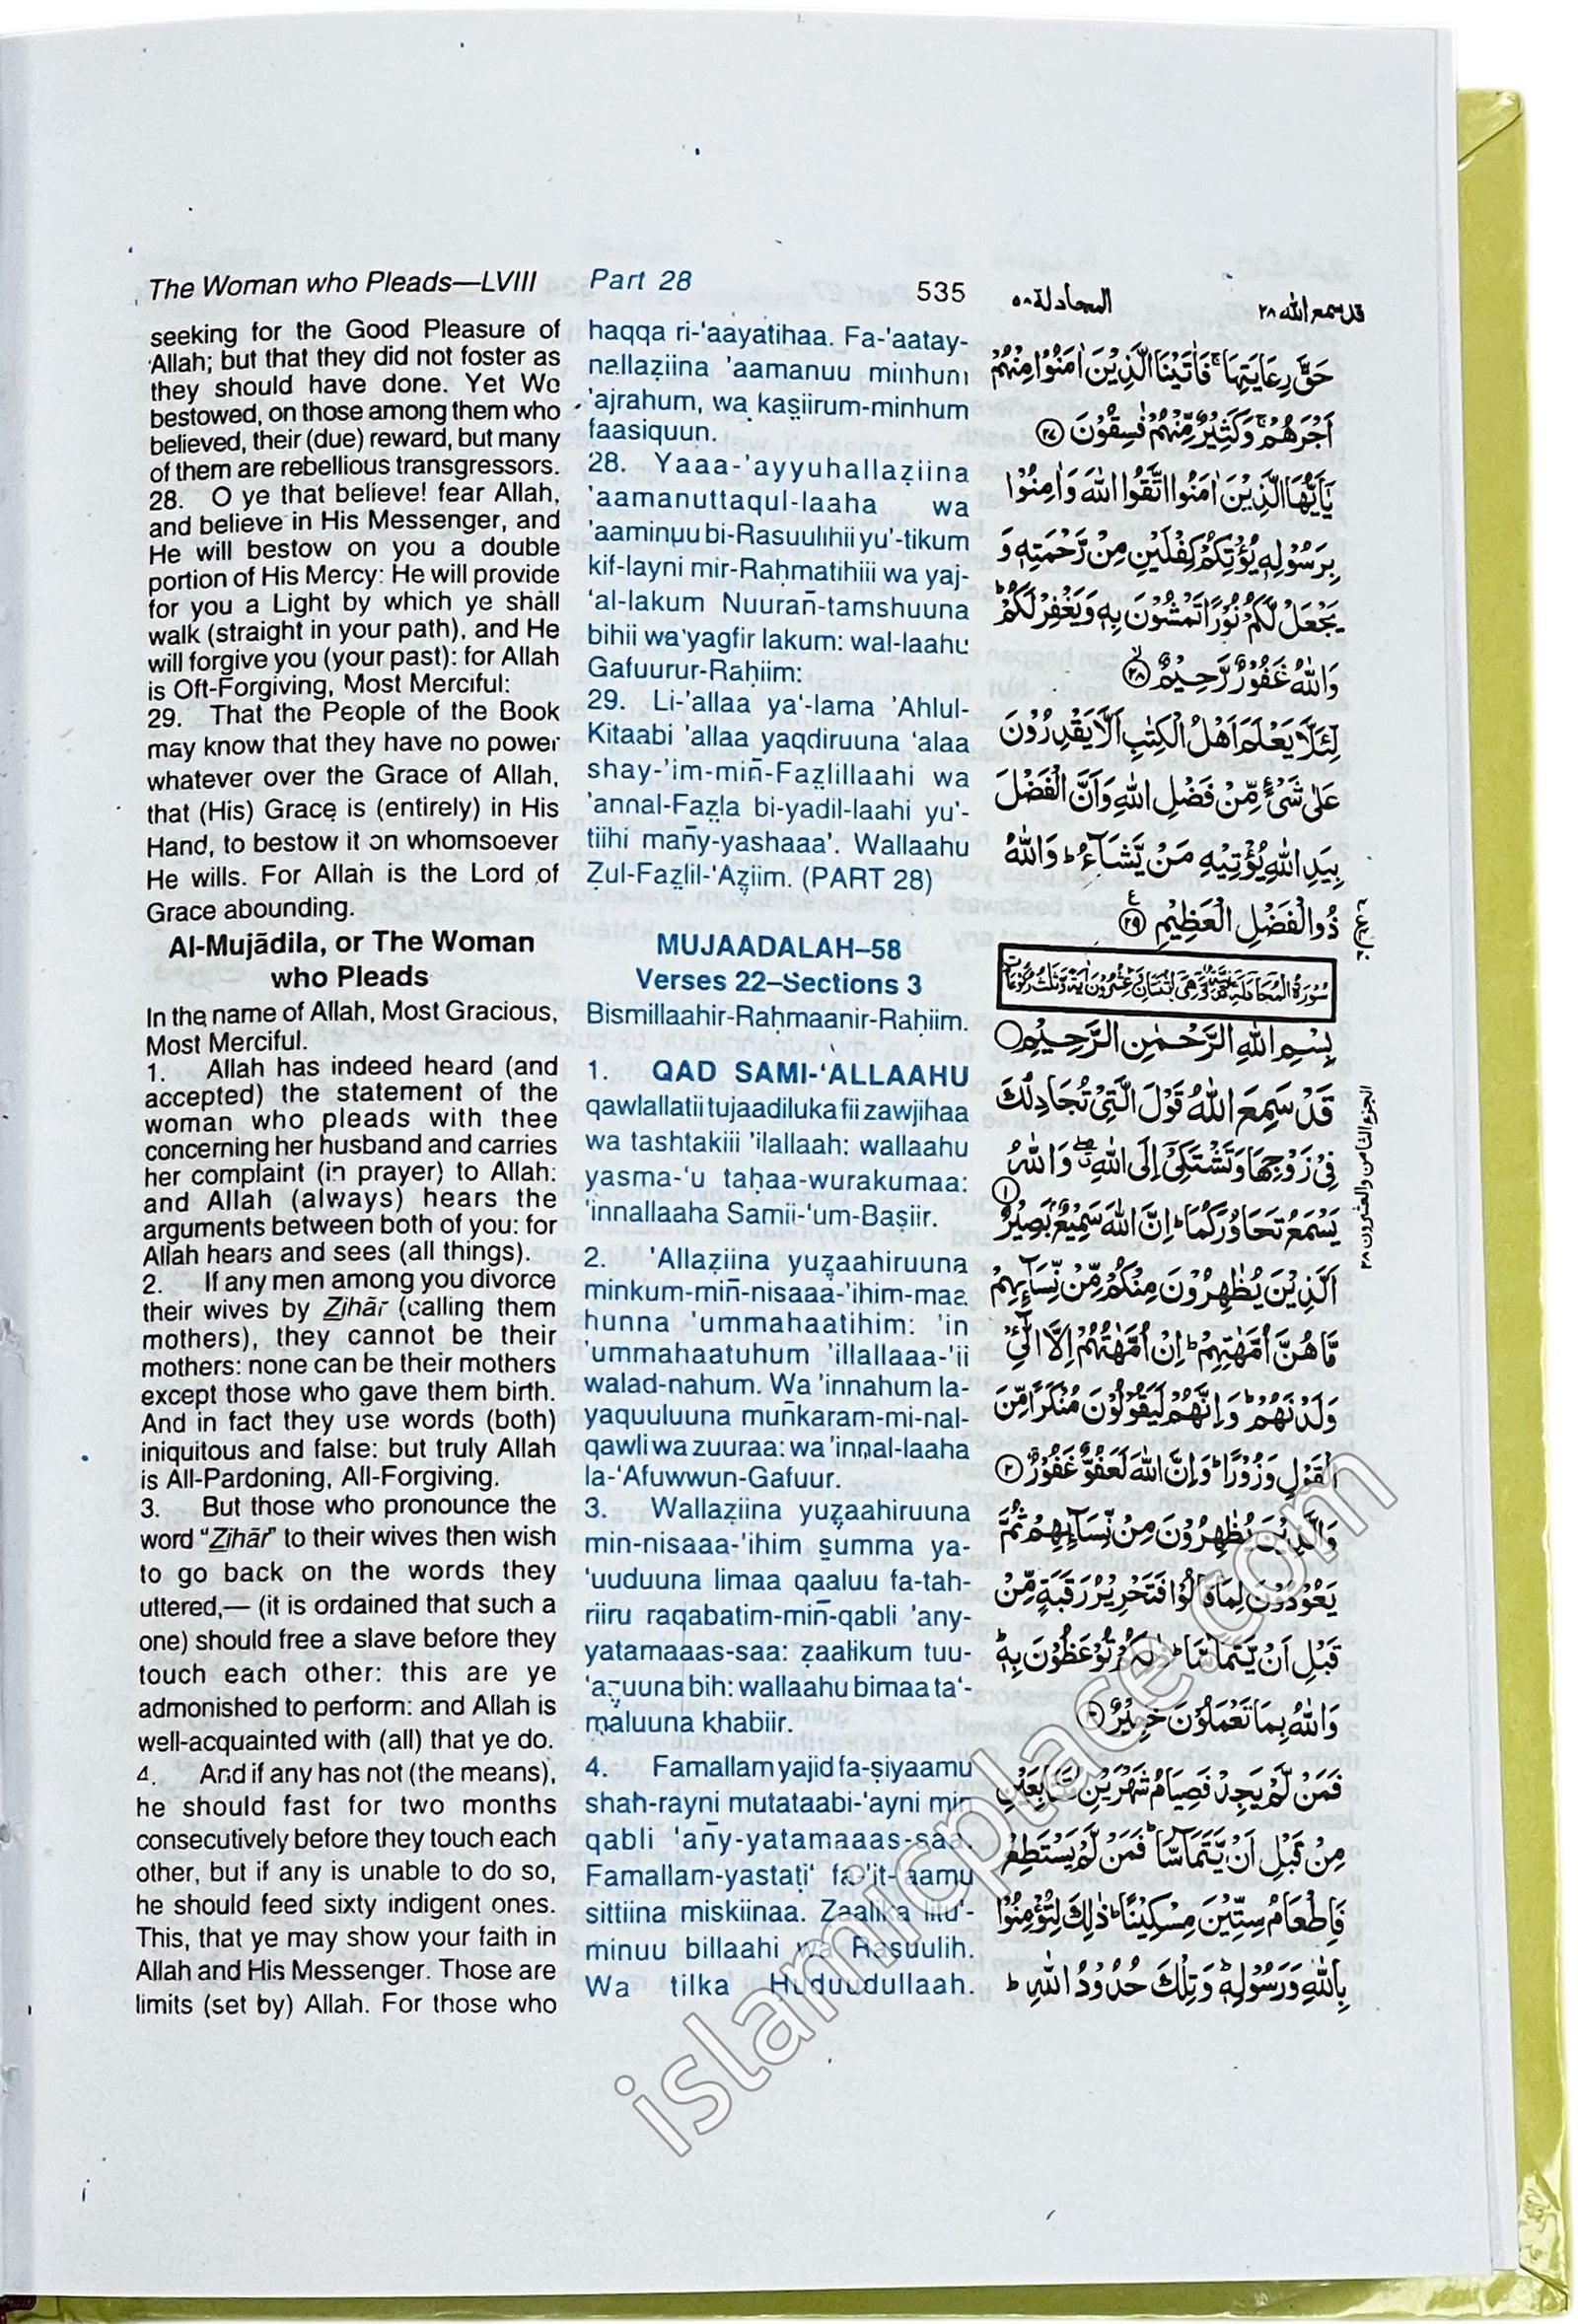 The Woman who Pleads—LVIII
seeking for the Good Pleasure of
Allah; but that they did not foster as
they should have done. Yet We
bestowed, on those among them who
believed, their (due) reward, but many
of them are rebellious transgressors.
28. O ye that believe! fear Allah,
and believe in His Messenger, and
He will bestow on you a double
portion of His Mercy: He will provide
for you a Light by which ye shall
walk (straight in your path), and He
will forgive you (your past): for Allah
is Oft-Forgiving, Most Merciful:
29. That the People of the Book
may know that they have no power
whatever over the Grace of Allah,
that (His) Grace is (entirely) in His
Hand, to bestow it on whomsoever
He wills. For Allah is the Lord of
Grace abounding.
Al-Mujādila, or The Woman
who Pleads
In the name of Allah, Most Gracious,
Most Merciful.
1. Allah has indeed heard (and
accepted) the statement of the
woman who pleads with thee
concerning her husband and carries
her complaint (in prayer) to Allah:
and Allah (always) hears the
arguments between both of you: for
Allah hears and sees (all things).
2. If any men among you divorce
their wives by Zihār (calling them
mothers), they cannot be their
mothers: none can be their mothers
except those who gave them birth.
And in fact they use words (both)
iniquitous and false: but truly Allah
is All-Pardoning, All-Forgiving.
3. But those who pronounce the
word “Zihār” to their wives then wish
to go back on the words they
uttered,— (it is ordained that such a
one) should free a slave before they
touch each other: this are ye
admonished to perform: and Allah is
well-acquainted with (all) that ye do.
4. And if any has not (the means),
he should fast for two months
consecutively before they touch each
other, but if any is unable to do so,
he should feed sixty indigent ones.
This, that ye may show your faith in
Allah and His Messenger. Those are
limits (set by) Allah. For those who
Part 28
535
haqqa ri-‘aayatihaa. Fa-’aatay-
nallaẓiina ’aamanuu minhum
’ajrahum, wa kaṣiirum-minhum
faasiquun.
28. Yaaa-’ayyuhallaẓiina
’aamanuttaqul-laaha wa
’aaminuu bi-Rasuulihii yu’-tikum
kif-layni mir-Raḥmatihiii wa yaj-
‘al-lakum Nuurañ-tamshuuna
bihii wa yagfir lakum: wal-laahu
Gafuurur-Raḥiim:
29. Li-’allaa ya‘-lama ’Ahlul-
Kitaabi ’allaa yaqdiruuna ‘alaa
shay-’im-miñ-Fazlillaahi wa
’annal-Fazla bi-yadil-laahi yu’-
tiihi mañy-yashaaa’. Wallaahu
Zul-Fazlil-‘Aẓiim. (PART 28)
MUJAADALAH–58
Verses 22–Sections 3
Bismillaahir-Raḥmaanir-Raḥiim.
1. QAD SAMI-‘ALLAAHU
qawlallatii tujaadiluka fii zawjihaa
wa tashtakiii ’ilallaah: wallaahu
yasma-‘u taḥaa-wurakumaa:
’innallaaha Samii-‘um-Baṣiir.
2. ’Allaẓiina yuẓaahiruuna
minkum-miñ-nisaaa-’ihim-maa
hunna ’ummahaatihim: ’in
’ummahaatuhum ’illallaaa-’ii
walad-nahum. Wa ’innahum la-
yaquuluuna muñkaram-mi-nal-
qawli wa zuuraa: wa ’innal-laaha
la-‘Afuwwun-Gafuur.
3. Wallaẓiina yuẓaahiruuna
min-nisaaa-’ihim summa ya-
‘uuduuna limaa qaaluu fa-tah-
riiru raqabatim-miñ-qabli ’any-
yatamaaas-saa: zaalikum tuu-
‘aẓuuna bih: wallaahu bimaa ta‘-
maluuna khabiir.
4. Famallam yajid fa-ṣiyaamu
shah-rayni mutataabi-‘ayni min
qabli ’añy-yatamaaas-saa.
Famallam-yastaṭi‘ fa-’it-‘aamu
sittiina miskiinaa. Zaalika litu’-
minuu billaahi wa Rasuulih.
Wa tilka Huduudullaah.
قد سمع الله ٢٨ المجادلة ٥٨
حَقَّ رِعَايَتِهَا ۚ فَاٰتَيْنَا الَّذِيْنَ اٰمَنُوْا مِنْهُمْ
اَجْرَهُمْ ۚ وَكَثِيْرٌ مِّنْهُمْ فٰسِقُوْنَ ٢٧
يٰۤاَيُّهَا الَّذِيْنَ اٰمَنُوا اتَّقُوا اللّٰهَ وَاٰمِنُوْا
بِرَسُوْلِهٖ يُؤْتِكُمْ كِفْلَيْنِ مِنْ رَّحْمَتِهٖ وَ
يَجْعَلْ لَّكُمْ نُوْرًا تَمْشُوْنَ بِهٖ وَيَغْفِرْ لَكُمْ ؕ
وَاللّٰهُ غَفُوْرٌ رَّحِيْمٌ ٢٨
لِّئَلَّا يَعْلَمَ اَهْلُ الْكِتٰبِ اَلَّا يَقْدِرُوْنَ
عَلٰى شَيْءٍ مِّنْ فَضْلِ اللّٰهِ وَاَنَّ الْفَضْلَ
بِيَدِ اللّٰهِ يُؤْتِيْهِ مَنْ يَّشَآءُ ؕ وَاللّٰهُ
ذُو الْفَضْلِ الْعَظِيْمِ ٢٩
بِسْمِ اللّٰهِ الرَّحْمٰنِ الرَّحِيْمِ
قَدْ سَمِعَ اللّٰهُ قَوْلَ الَّتِيْ تُجَادِلُكَ
فِيْ زَوْجِهَا وَتَشْتَكِيْۤ اِلَى اللّٰهِ ۖ وَاللّٰهُ
يَسْمَعُ تَحَاوُرَكُمَا ؕ اِنَّ اللّٰهَ سَمِيْعٌۢ بَصِيْرٌ ١
اَلَّذِيْنَ يُظٰهِرُوْنَ مِنْكُمْ مِّنْ نِّسَآئِهِمْ
مَّا هُنَّ اُمَّهٰتِهِمْ ؕ اِنْ اُمَّهٰتُهُمْ اِلَّا الّٰٓـِٔيْ
وَلَدْنَهُمْ ؕ وَاِنَّهُمْ لَيَقُوْلُوْنَ مُنْكَرًا مِّنَ
الْقَوْلِ وَزُوْرًا ؕ وَاِنَّ اللّٰهَ لَعَفُوٌّ غَفُوْرٌ ٢
وَالَّذِيْنَ يُظٰهِرُوْنَ مِنْ نِّسَآئِهِمْ ثُمَّ
يَعُوْدُوْنَ لِمَا قَالُوْا فَتَحْرِيْرُ رَقَبَةٍ مِّنْ
قَبْلِ اَنْ يَّتَمَآسَّا ؕ ذٰلِكُمْ تُوْعَظُوْنَ بِهٖ ؕ
وَاللّٰهُ بِمَا تَعْمَلُوْنَ خَبِيْرٌ ٣
فَمَنْ لَّمْ يَجِدْ فَصِيَامُ شَهْرَيْنِ مُتَتَابِعَيْنِ
مِنْ قَبْلِ اَنْ يَّتَمَآسَّا ۚ فَمَنْ لَّمْ يَسْتَطِعْ
فَاِطْعَامُ سِتِّيْنَ مِسْكِيْنًا ؕ ذٰلِكَ لِتُؤْمِنُوْا
بِاللّٰهِ وَرَسُوْلِهٖ ؕ وَتِلْكَ حُدُوْدُ اللّٰهِ ؕ
الجزء الثامن والعشرون ٢٨
islamicplace.com